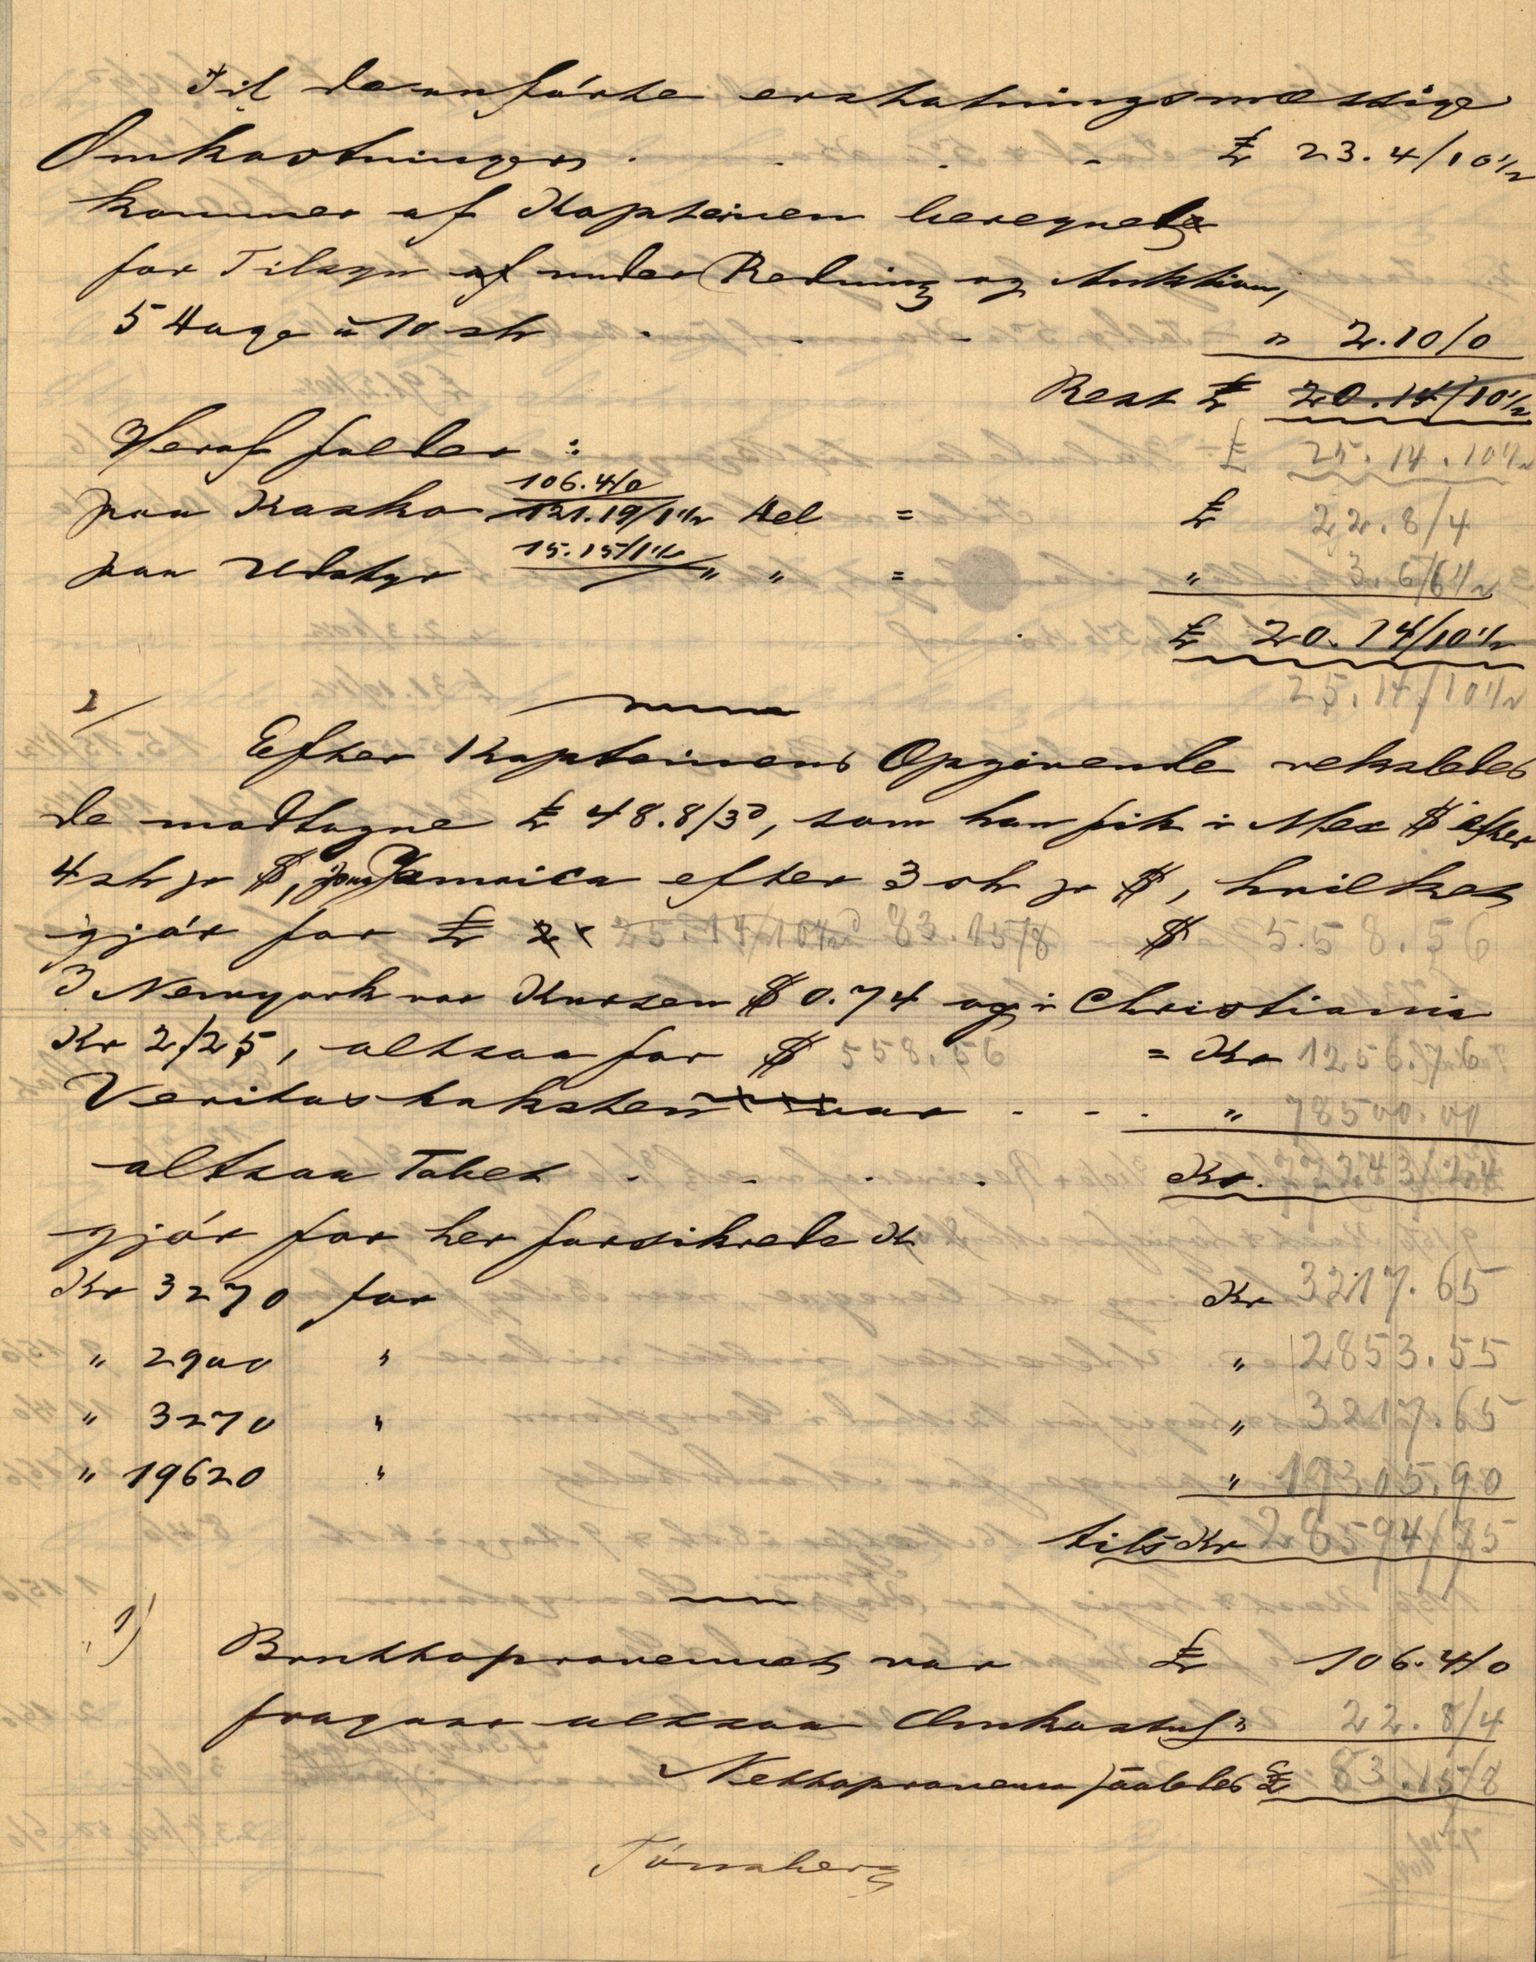 Til desanførte erstatningsmæssige
Omkostninger . . . . £ 23.4/10 1/2
kommer af Kapteinen beregnede
for Tilsyn af under Redning og Auktion,
5 Dage à 10 sh . . . " 2.10/0
Rest £ 20.14/10 1/2
Heraf falder : £ 25.14.10 1/2
106.4/0
paa Kasko 121.19/1 1/2 Del = £ 22.8/4
15.15/1 1/2
paa Udstyr " " = " 3.6/6 1/2
£ 20.14/10 1/2
25.14/10 1/2
2/
Efter Kapteinens Opgivende
de modtagne £ 48.8/3d, som han fik i Mex $ efter
4 sh pr $, paa Jamaica efter 3 sh pr $, hvilket
gjør for £ 25.14/10 1/2 83.15/8 $ 558.56
I Newyork var Kursen $ 0.74 og i Christiania
Kr 2/25, altsaa for $ 558.56 = Kr 1256.76
Veritastaksten var . . . " 78500.00
altsaa Tabet . . . . Kr. 77243/24
gjør for her forsikrede K
Kr 3270 for Kr 3217.65
" 2900 " " 2853.55
" 3270 " " 3217.65
" 19620 " " 19305.90
tils Kr 28594/75
1)
Bruttoprovenuet var £ 106.4/0
fragaar altsaa Omkostng " 22.8/4
Nettoprovenu saaledes £ 83.15/8
Tønsberg